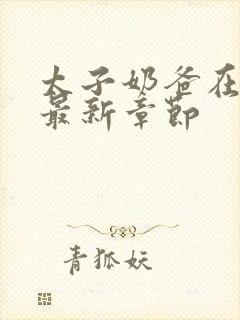 太子奶爸在
最新章節
青狐妖